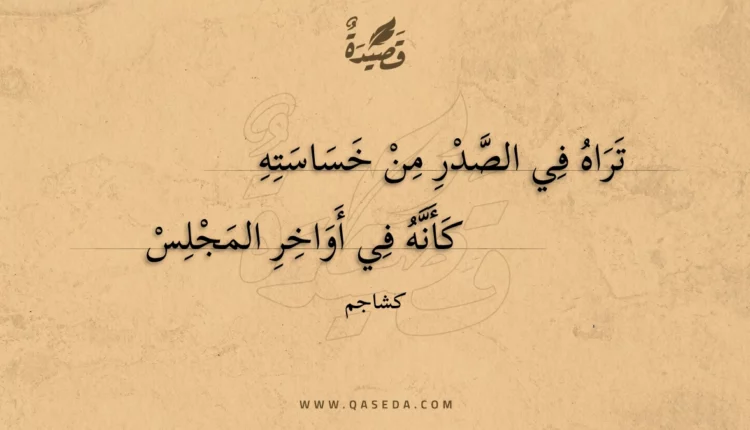 قَصِيْدَةٌ
تَرَاهُ فِي الصَّدْرِ مِنْ خَسَاسَتِهِ
كَأَنَّهُ فِي أَوَاخِرِ المَجْلِسْ
كشاجم
WWW.QASEDA.COM